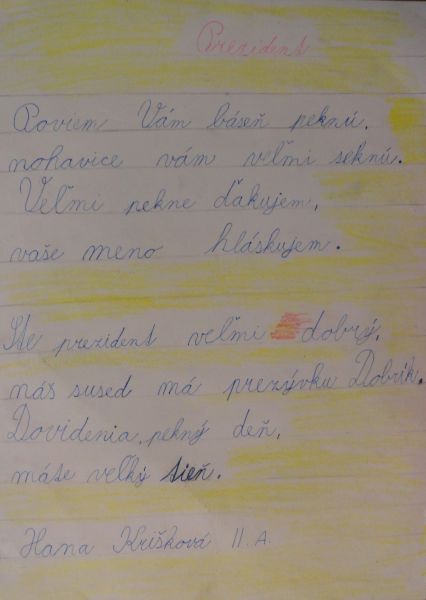 Prezident
Poviem Vám báseň peknú,
nohavice vám veľmi seknú.
Veľmi pekne ďakujem,
vaše meno hláskujem.
Ste prezident veľmi dobrý,
náš sused má prezývku Dobrík.
Dovidenia, pekný deň,
máte veľký tieň.
Hana Krišková II. A.